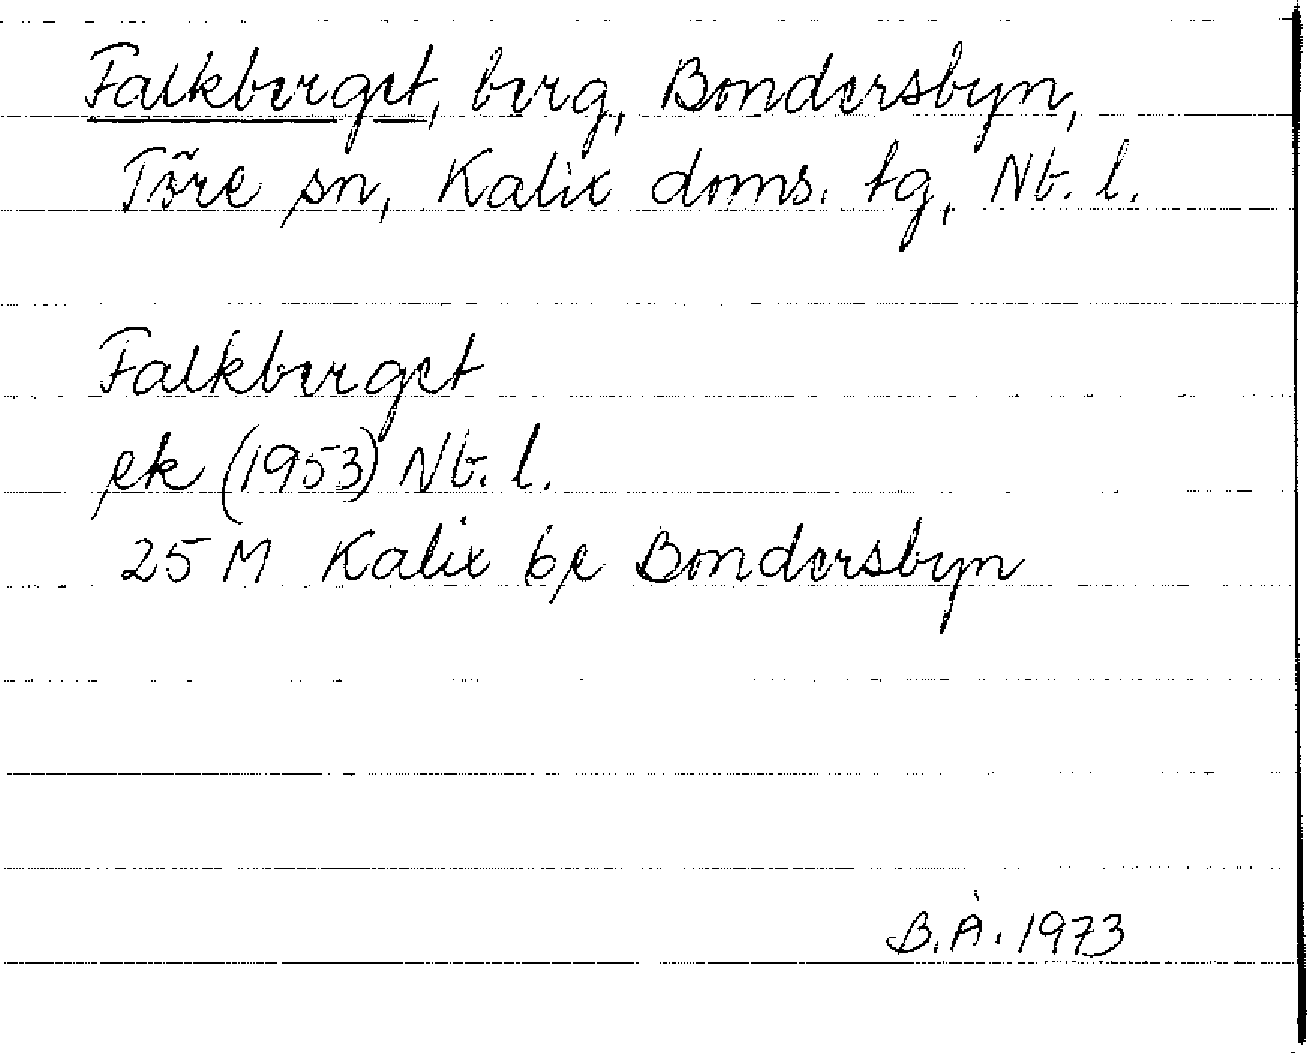 Falkberget, berg, Bondersbyn,
Töre sn, Kalix doms. tg, Nb. l.
Falkberget
ek (1953) Nb. l.
25 M Kalix 6 e Bondersbyn
B.Å. 1973